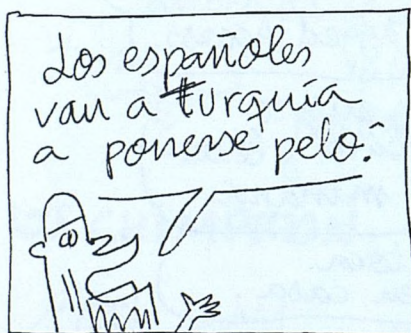 Los españoles
van a turquía
a ponerse pelo.